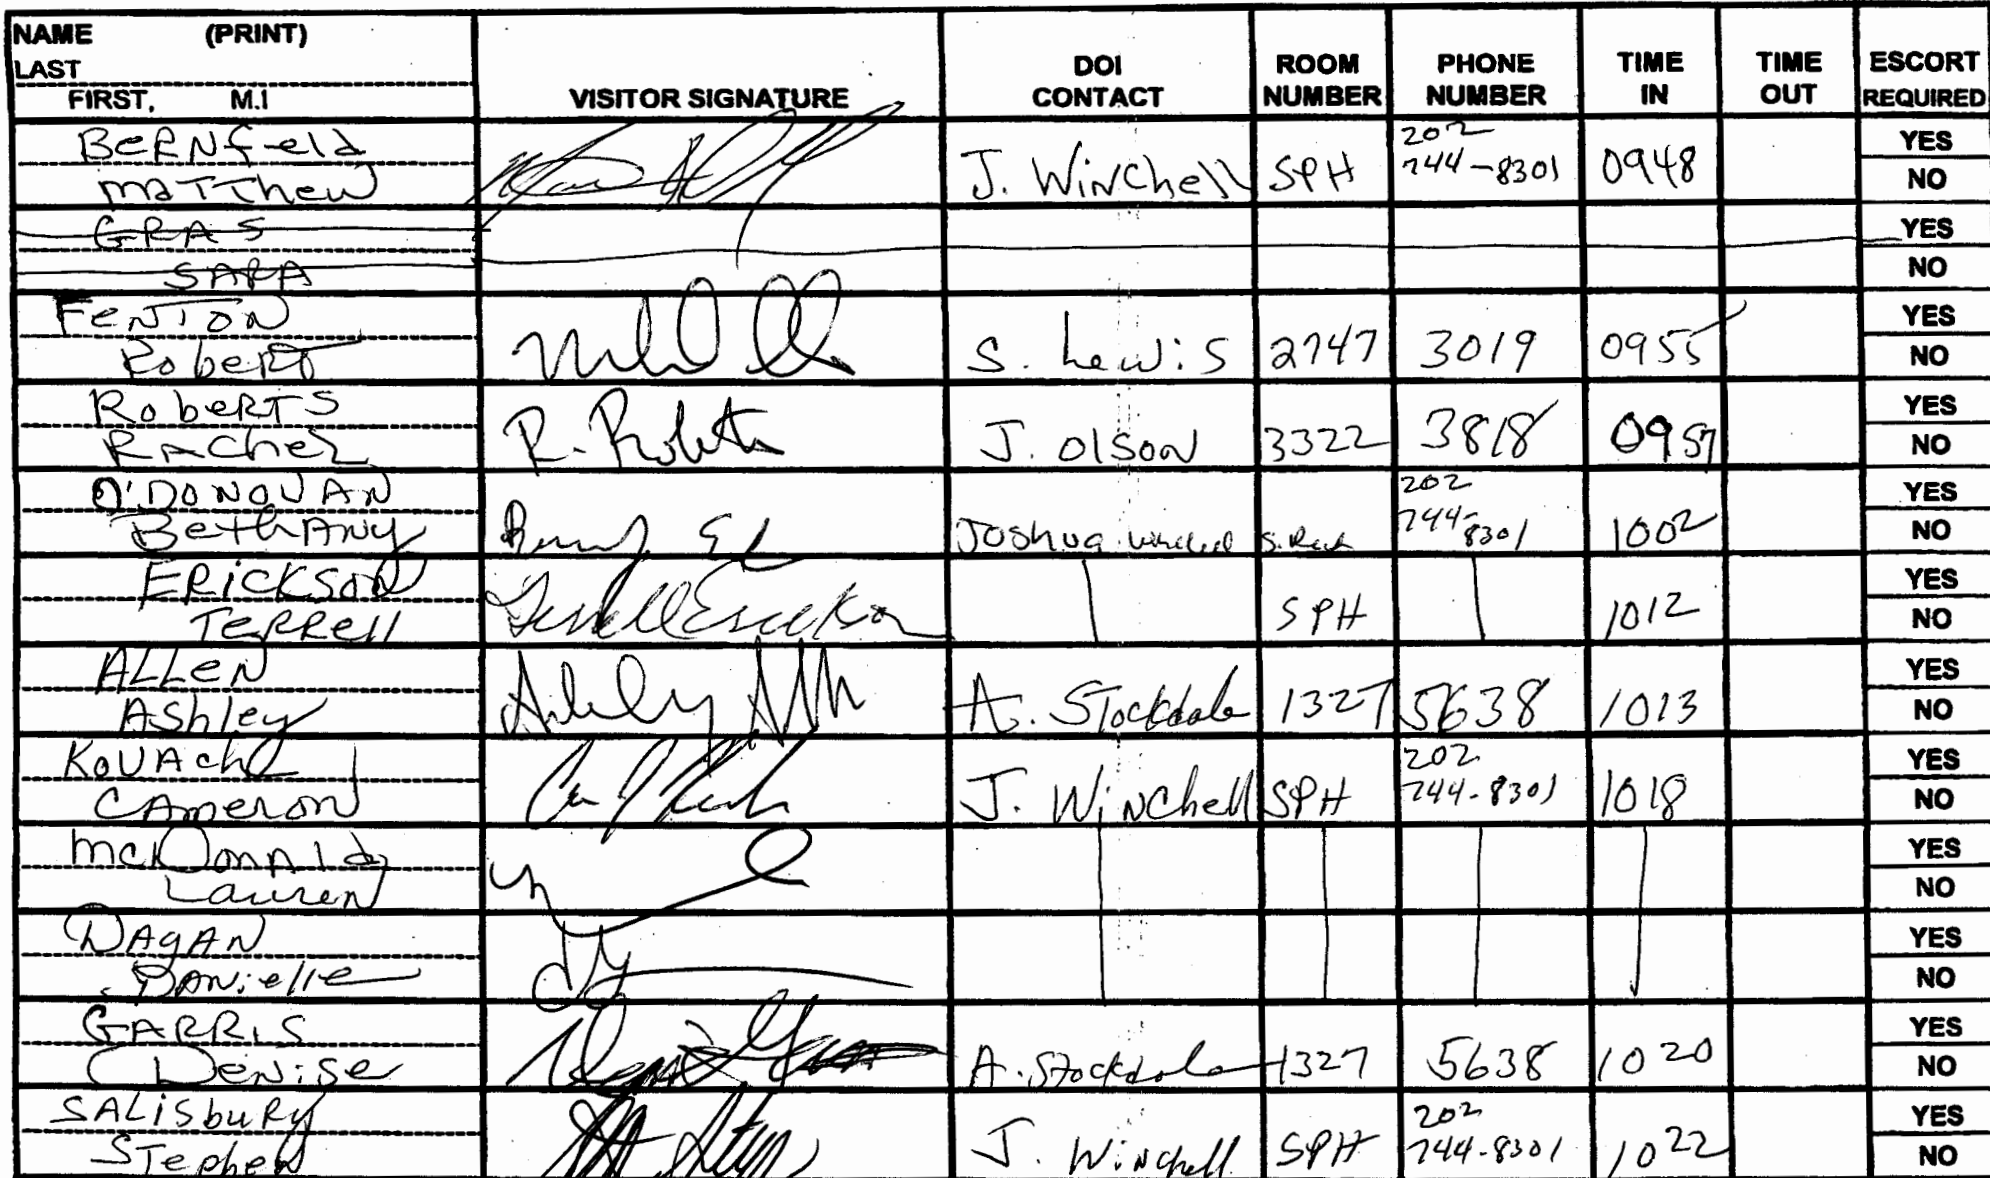 NAME (PRINT)
LAST
FIRST, M.I
VISITOR SIGNATURE
DOI CONTACT
ROOM NUMBER
PHONE NUMBER
TIME IN
TIME OUT
ESCORT REQUIRED
BERNfeld
MATThew
J. WiNChell SPH 202 744-8301 0948 YES NO
GRAS
SARA
YES NO
FeNTON
RobeRT
S. Lewis 2747 3019 0955 YES NO
RobeRTS
RAcheL
R. Roberts
J. OlSON 3322 3818 0957 YES NO
O'DONOVAN
BethANy
Joshua 202 744-8301 1002 YES NO
ERiCKSON
TeRRell
Terrell Erickson
SPH 1012 YES NO
ALLeN
AShley
Ashley
A. STockdale 1327 5638 1013 YES NO
KoVACh
CAmeron
J. WiNChell SPH 202 744-8301 1018 YES NO
McDonald
Lauren
YES NO
DAgAN
DANielle
YES NO
GARRiS
DeNise
A. Stockdale 1327 5638 1020 YES NO
SALiSbuRy
STephen
J. WiNchell SPH 202 744-8301 1022 YES NO